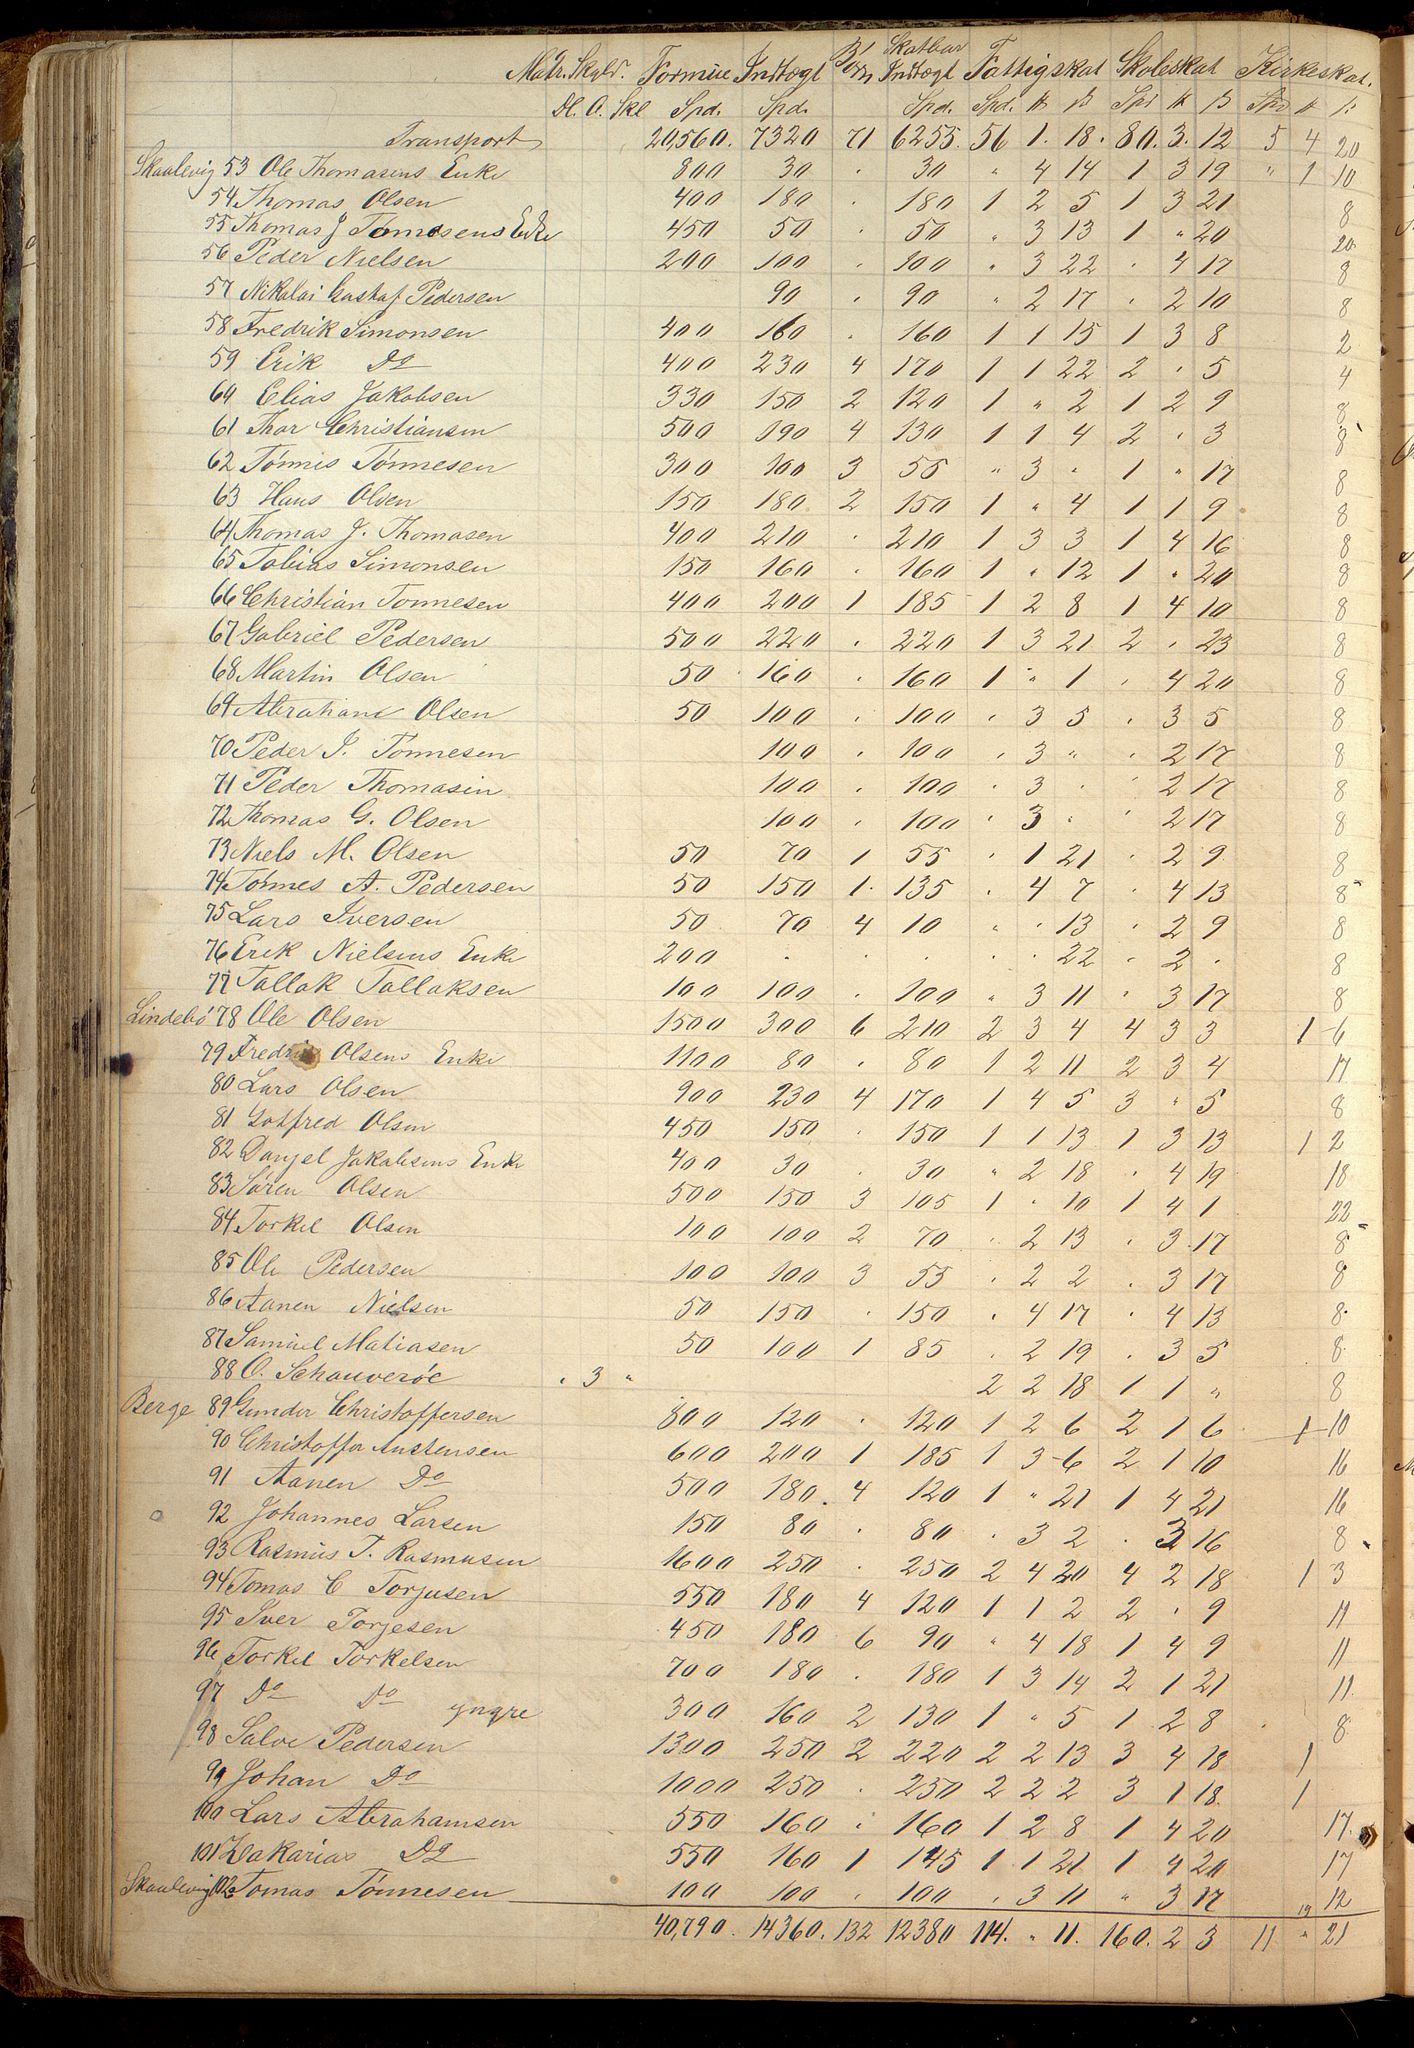 Matr. Skyld. Formue Indtægt Børn Skatbar Indtægt Fattigskat Skoleskat Kirkeskat.
Dl. O. Skl Spd. Spd. Spd. Spd. # β Spd # β Spd # β
Transport 20,560. 7320 71 6255. 56 1. 18. 80. 3. 12 5 4 20
Skaalevig 53 Ole Thomasens Enke 800 30 . 30 " 4 14 1 3 19 " 1 10
54 Thomas Olsen 400 180 . 180 1 2 5 1 3 21 8
55 Thomas J Tønnesens Enke 450 50 . 50 " 3 13 1 " 20 20
56 Peder Nielsen 200 100 . 100 " 3 22 . 4 17 8
57 Nikolai Gustaf Pedersen 90 . 90 " 2 17 . 2 10 8
58 Fredrik Simonsen 400 160 . 160 1 1 15 1 3 8 2
59 Erik Do 400 230 4 170 1 1 22 2 . 5 4
60 Elias Jakobsen 330 150 2 120 1 " 2 1 2 9 8
61 Thor Christiansen 500 190 4 130 1 1 4 2 . 3 8
62 Tönnis Tönnesen 300 100 3 55 " 3 " 1 " 17 8
63 Hans Olsen 150 180 2 150 1 " 4 1 1 9 8
64 Thomas J. Thomasen 400 210 . 210 1 3 3 1 4 16 8
65 Tobias Simonsen 150 160 . 160 1 " 12 1 " 20 8
66 Christian Tonnesen 400 200 1 185 1 2 8 1 4 10 8
67 Gabriel Pedersen 500 220 . 220 1 3 21 2 . 23 8
68 Martin Olsen 50 160 . 160 1 " 1 . 4 20 8
69 Abraham Olsen 50 100 . 100 . 3 5 . 3 5 8
70 Peder J. Tonnesen 100 . 100 . 3 " . 2 17 8
71 Peder Thomasen 100 . 100 . 3 . . 2 17 8
72 Thomas G. Olsen 100 . 100 . 3 " . 2 17 8
73 Niels M. Olsen 50 70 1 55 . 1 21 . 2 9 8
74 Tönnes A. Pedersen 50 150 1. 135 . 4 7 . 4 13 8
75 Lars Iversen 50 70 4 10 " . 13 . 2 9 8
76 Erik Nielsens Enke 200 . . . . . 22 . 2 . 8
77 Tallak Tallaksen 100 100 . 100 " 3 11 . 3 17 8
Lindebö 78 Ole Olsen 1500 300 6 210 2 3 4 4 3 3 1 6
79 Fredrik Olsens Enke 1100 80 . 80 1 2 11 2 3 4 17
80 Lars Olsen 900 230 4 170 1 4 5 3 " 5 8
81 Gotfred Olsen 450 150 . 150 1 1 13 1 3 13 1 2
82 Danjel Jakobsens Enke 400 30 . 30 " 2 18 . 4 19 18
83 Søren Olsen 500 150 3 105 1 . 10 1 4 1 22
84 Torkel Olsen 100 100 2 70 . 2 13 . 3 17 8
85 Ole Pedersen 100 100 3 55 . 2 2 . 3 17 8
86 Aanen Nielsen 50 150 . 150 . 4 17 . 4 13 8
87 Samuel Matiasen 50 100 1 85 . 2 19 . 3 5 8
88 O. Schouveröe . 3 " 2 2 18 1 1 " 8
Berge 89 Gunder Christoffersen 800 120 . 120 1 2 6 2 1 6 1 10
90 Christoffer Austensen 600 200 1 185 1 3 6 2 1 10 16
91 Aanen Do 500 180. 4 120 1 " 21 1 4 21 16
92 Johannes Larsen 150 80 . 80 . 3 2 . 3 16 8
93 Rasmus T. Rasmusen 1600 250 . 250 2 4 20 4 2 18 1 3
94 Tomas C Torjusen 550 180 4 120 1 1 2 2 . 9 11
95 Iver Torjesen 450 180 6 90 " 4 18 1 4 9 11
96 Torkel Torkelsen 700 180 . 180 1 3 14 2 1 21 11
97 Do Do yngre 300 160 2 130 1 " 5 1 2 8 8
98 Salve Pedersen 1300 250 2 220 2 2 13 3 4 18 1
99 Johan Do 1000 250 . 250 2 2 2 3 1 18 1
100 Lars Abrahamsen 550 160 . 160 1 2 8 1 4 20 17
101 Zakarias Do 550 160 1 145 1 1 21 1 4 20 17
Skaalevig 102 Tomas Tönnesen 100 100 . 100 . 3 11 " 3 17 12
19
40,790. 14360. 132 12380 114. " 11. 160. 2 3 11 " 21